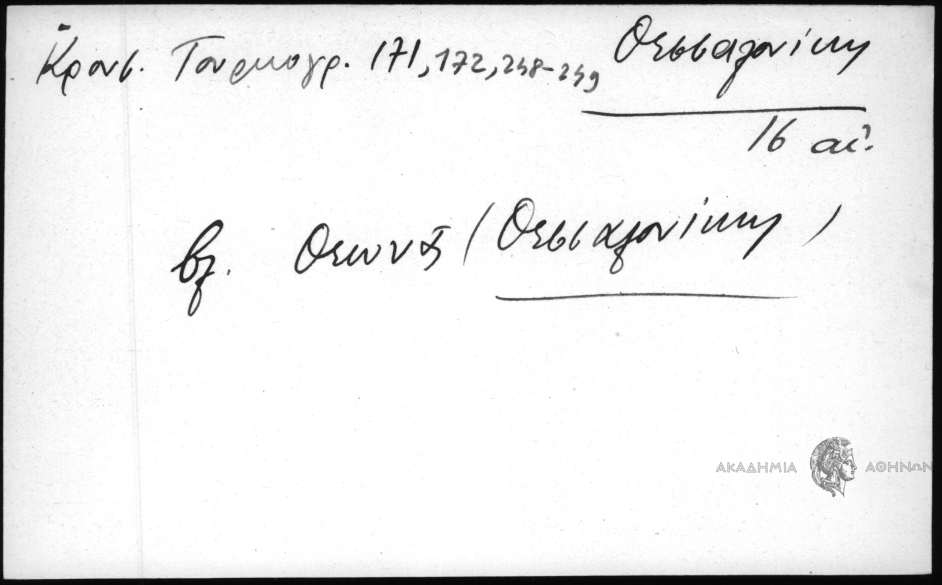 Κρουσ. Τουρκογρ. 171, 172, 248-249 Θεσσαλονίκη
16 αἰ.
βλ. Θεωνᾶς (Θεσσαλονίκη)
ΑΚΑΔΗΜΙΑ ΑΘΗΝΩΝ